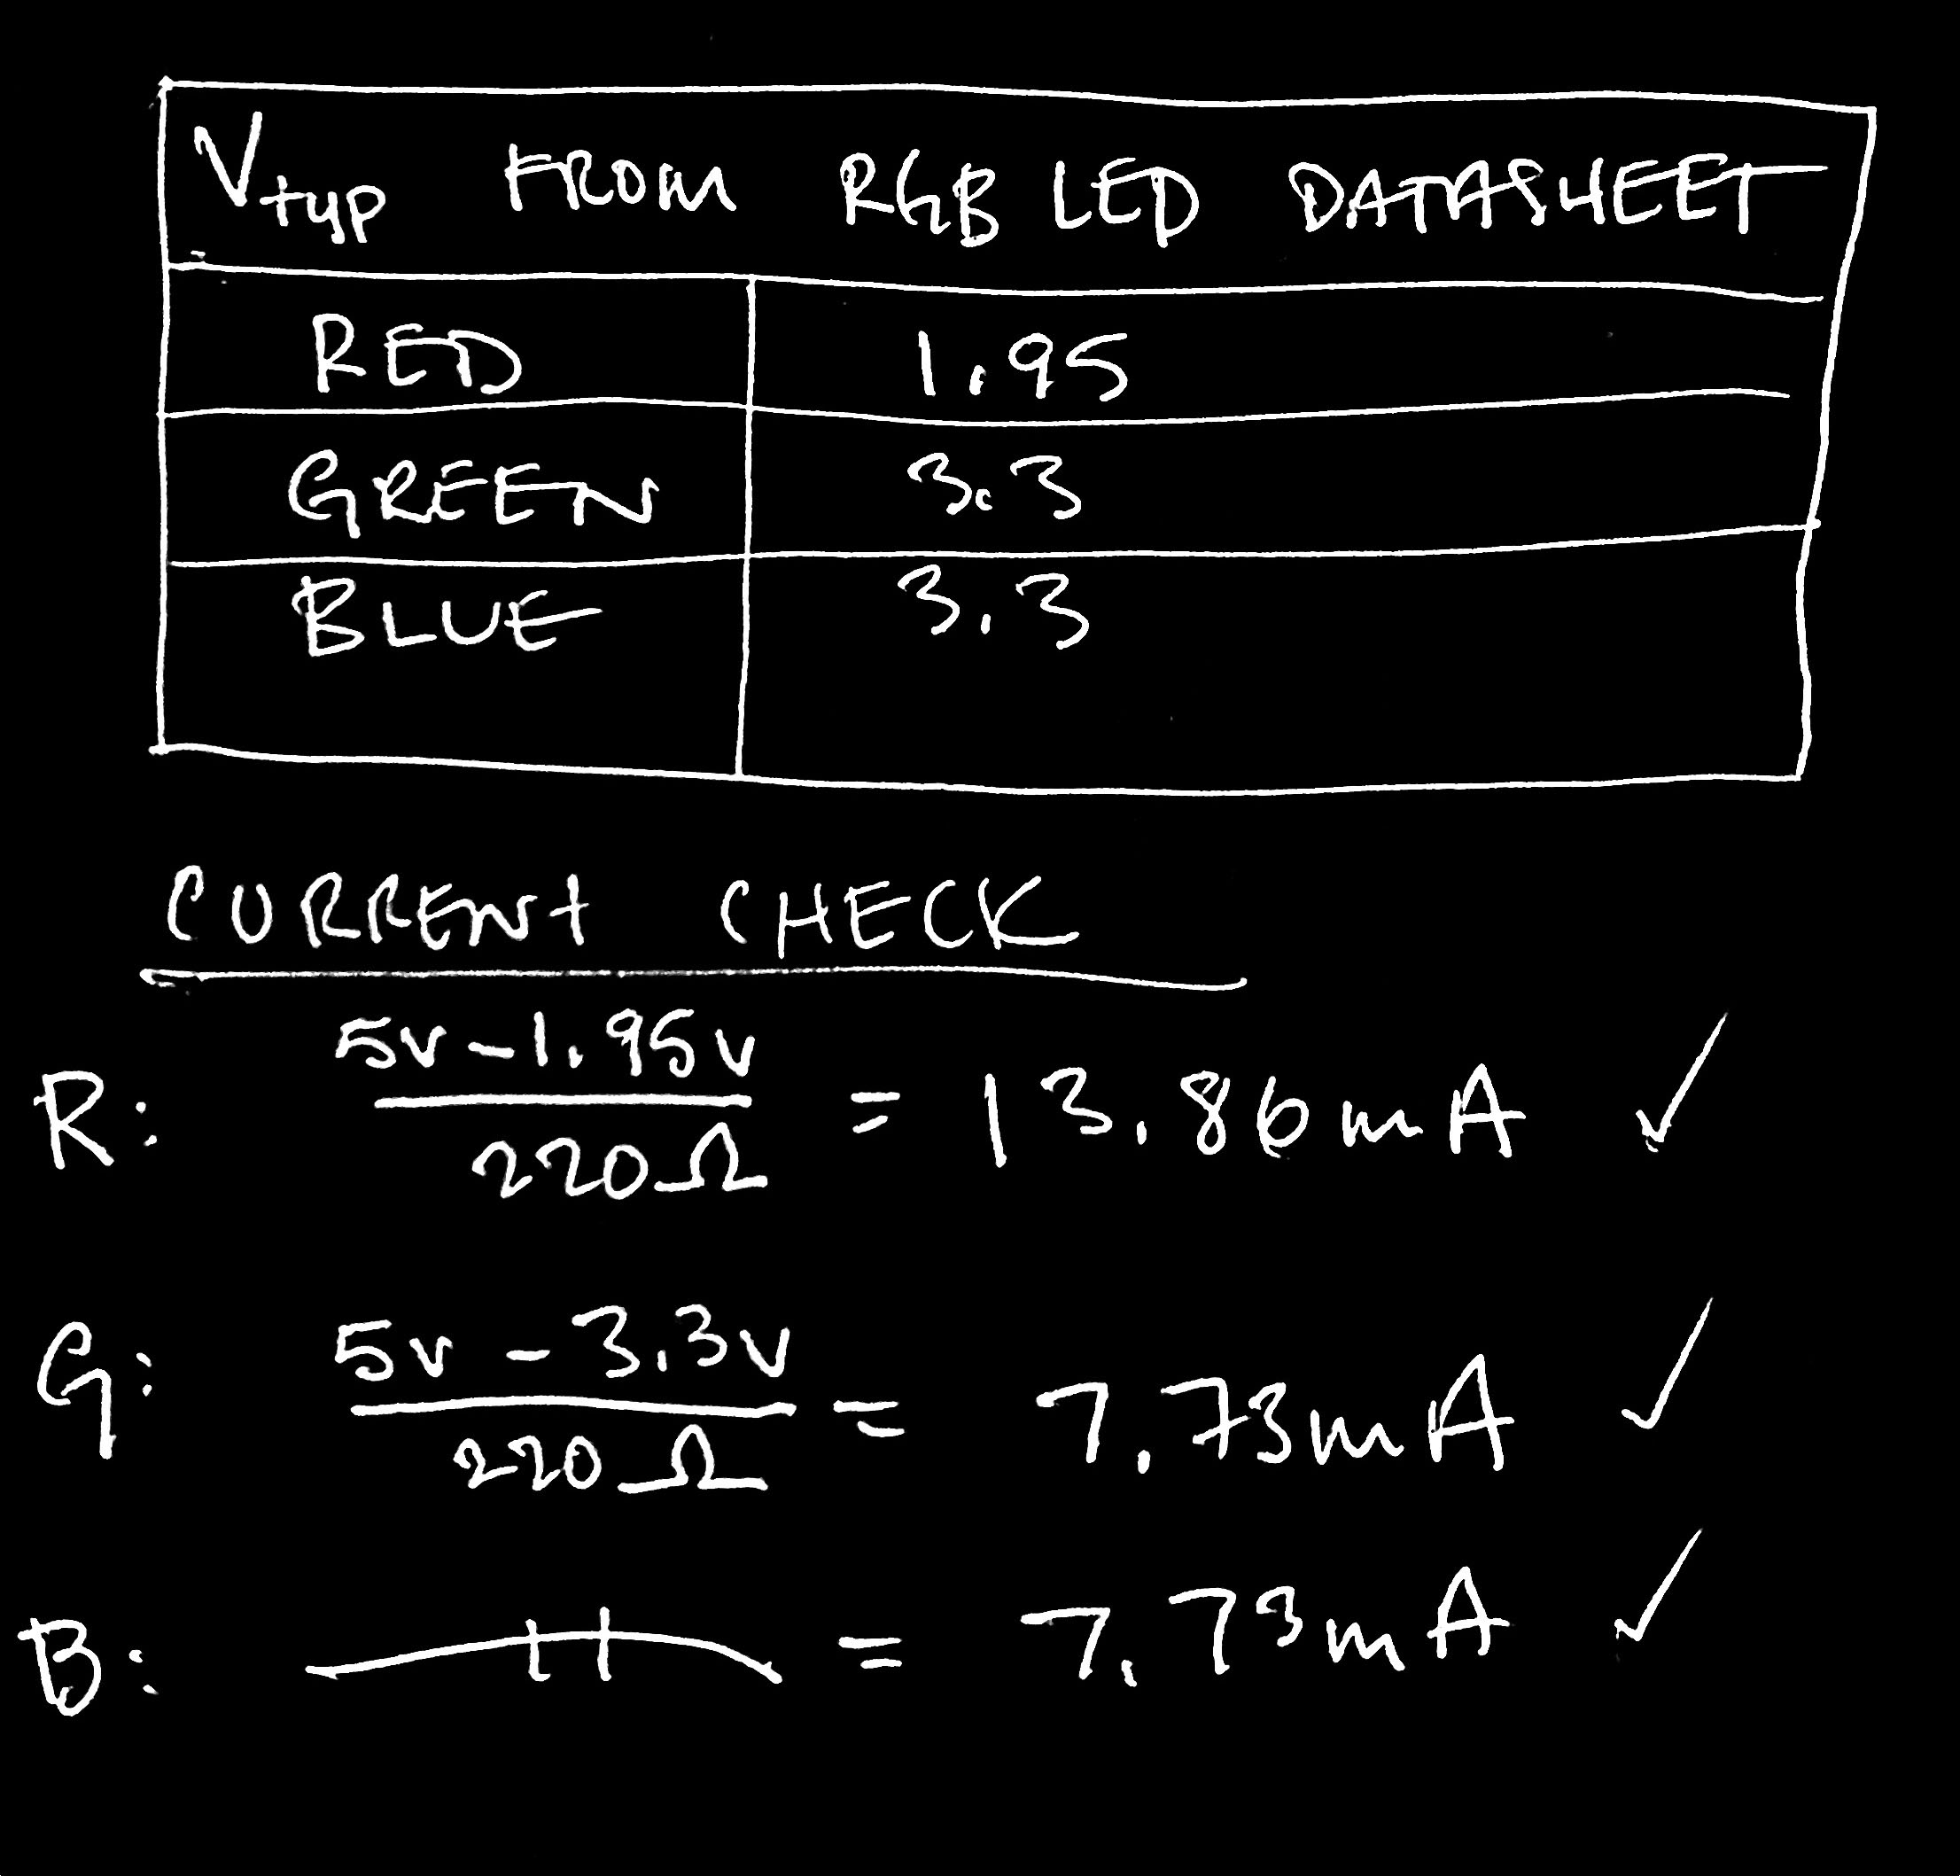 Vtyp FROM RGB LED DATASHEET
RED 1.95
GREEN 3.3
BLUE 3.3
CURRENt CHECK
R: 5v-1.95v / 220Ω = 13.86mA ✓
G: 5v - 3.3v / 220Ω = 7.73mA ✓
B: —++— = 7.73mA ✓